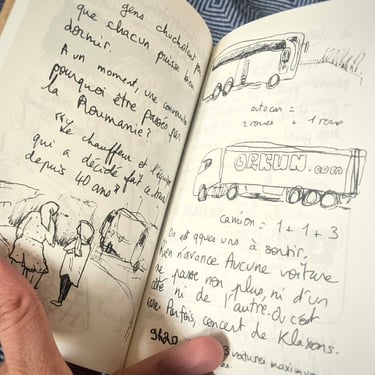 gens chuchotent
que chacun puisse bien
dormir.
A un moment, une
pourquoi être passés par
la Roumanie?
"Le chauffeur et l'équipe
qui a décidé fait ce
depuis 40 ans"
autocar =
2 roues + 1 roue
ORFUN.com
camion = 1 + 1 + 3
On est qques uns à sortir,
rien n'avance Aucune voiture
ne passe non plus, ni d'un
côté ni de l'autre. Ou c'est
rare. Parfois, concert de Klaxons.
9h20
3 voitures maximum